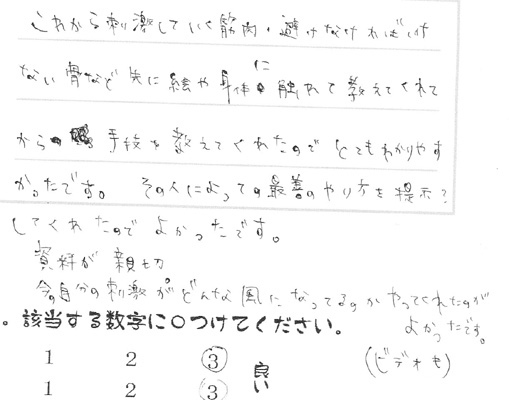 これから刺激していく筋肉・避けなければいけ
ない骨など先に絵や身体に触れて教えてくれて
から手技を教えてくれたのでとてもわかりやす
かったです。 その人によっての最善のやり方を提示?
してくれたのでよかったです。
資料が親切
今の自分の刺激がどんな風になってるのかやってくれたのが
よかったです。
(ビデオも)
。該当する数字に○つけてください。
1 2 3 良い
1 2 3